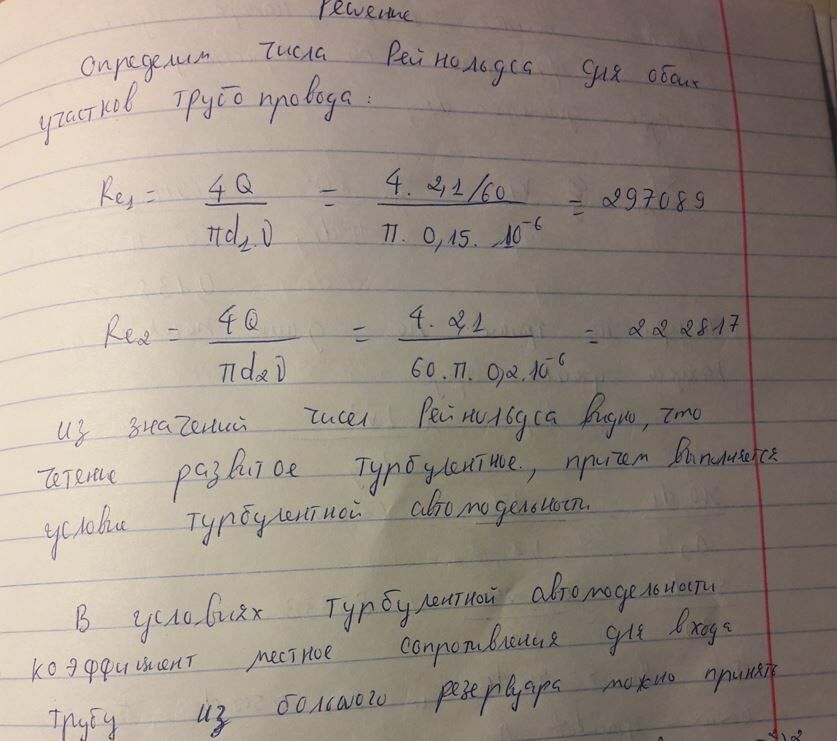 Решение
Определим числа Рейнольдса для обоих
участков трубопровода:
Re₁ = 4Q / πd₁ν = 4 · 2,1/60 / π · 0,15 · 10⁻⁶ = 297089
Re₂ = 4Q / πd₂ν = 4 · 2,1 / 60 · π · 0,2 · 10⁻⁶ = 222817
из значений чисел Рейнольдса видно, что
течение развитое турбулентное, причем выполняется
условие турбулентной автомодельности
В условиях турбулентной автомодельности
коэффициент местное сопротивления для входа
трубу из большого резервуара можно принять